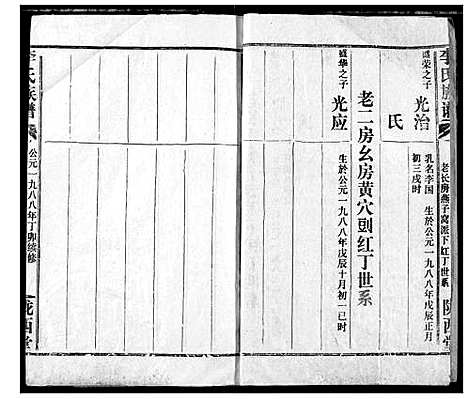 李氏族谱
老长房燕子窝派下红丁世系
陇西堂
盛荣之子
光治
乳名李国 生於公元一九八八年戊辰正月
初三戌时
氏
老二房幺房黄穴剅红丁世系
盛华之子
光应
生於公元一九八八年戊辰十月初一已时
李氏族谱
公元一九八八年丁卯续修
陇西堂